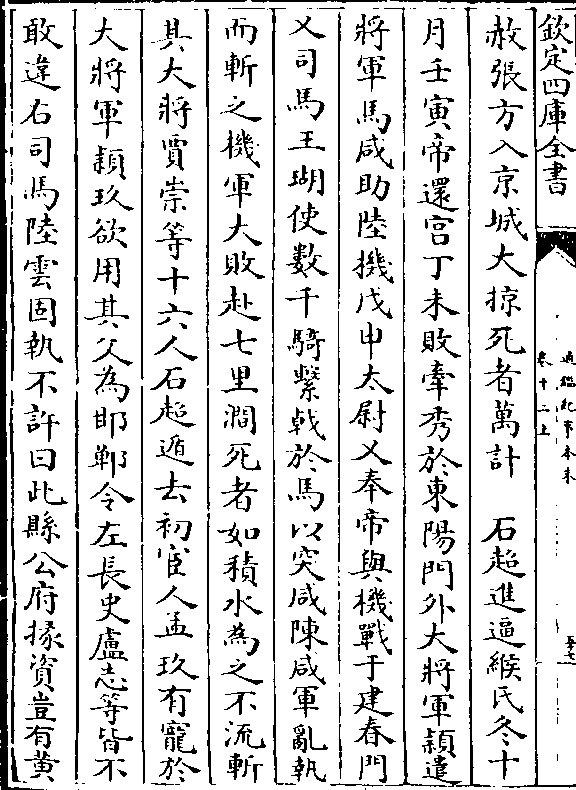 欽定四庫全書
通鑑紀事本末
卷十二上
赦張方入京城大掠死者萬計　石超進逼緱氏冬十
月壬寅帝還宫丁未敗牽秀於東陽門外大將軍穎遣
將軍馬咸助陸機戊申太尉乂奉帝與機戰于建春門
乂司馬王瑚使數千騎繫戟於馬以突咸陳咸軍亂執
而斬之機軍大敗赴七里澗死者如積水為之不流斬
其大將賈崇等十六人石超遁去初宦人孟玖有寵於
大將軍穎玖欲用其父為邯鄲令左長史盧志等皆不
敢違右司馬陸雲固執不許曰此縣公府掾資豈有黄